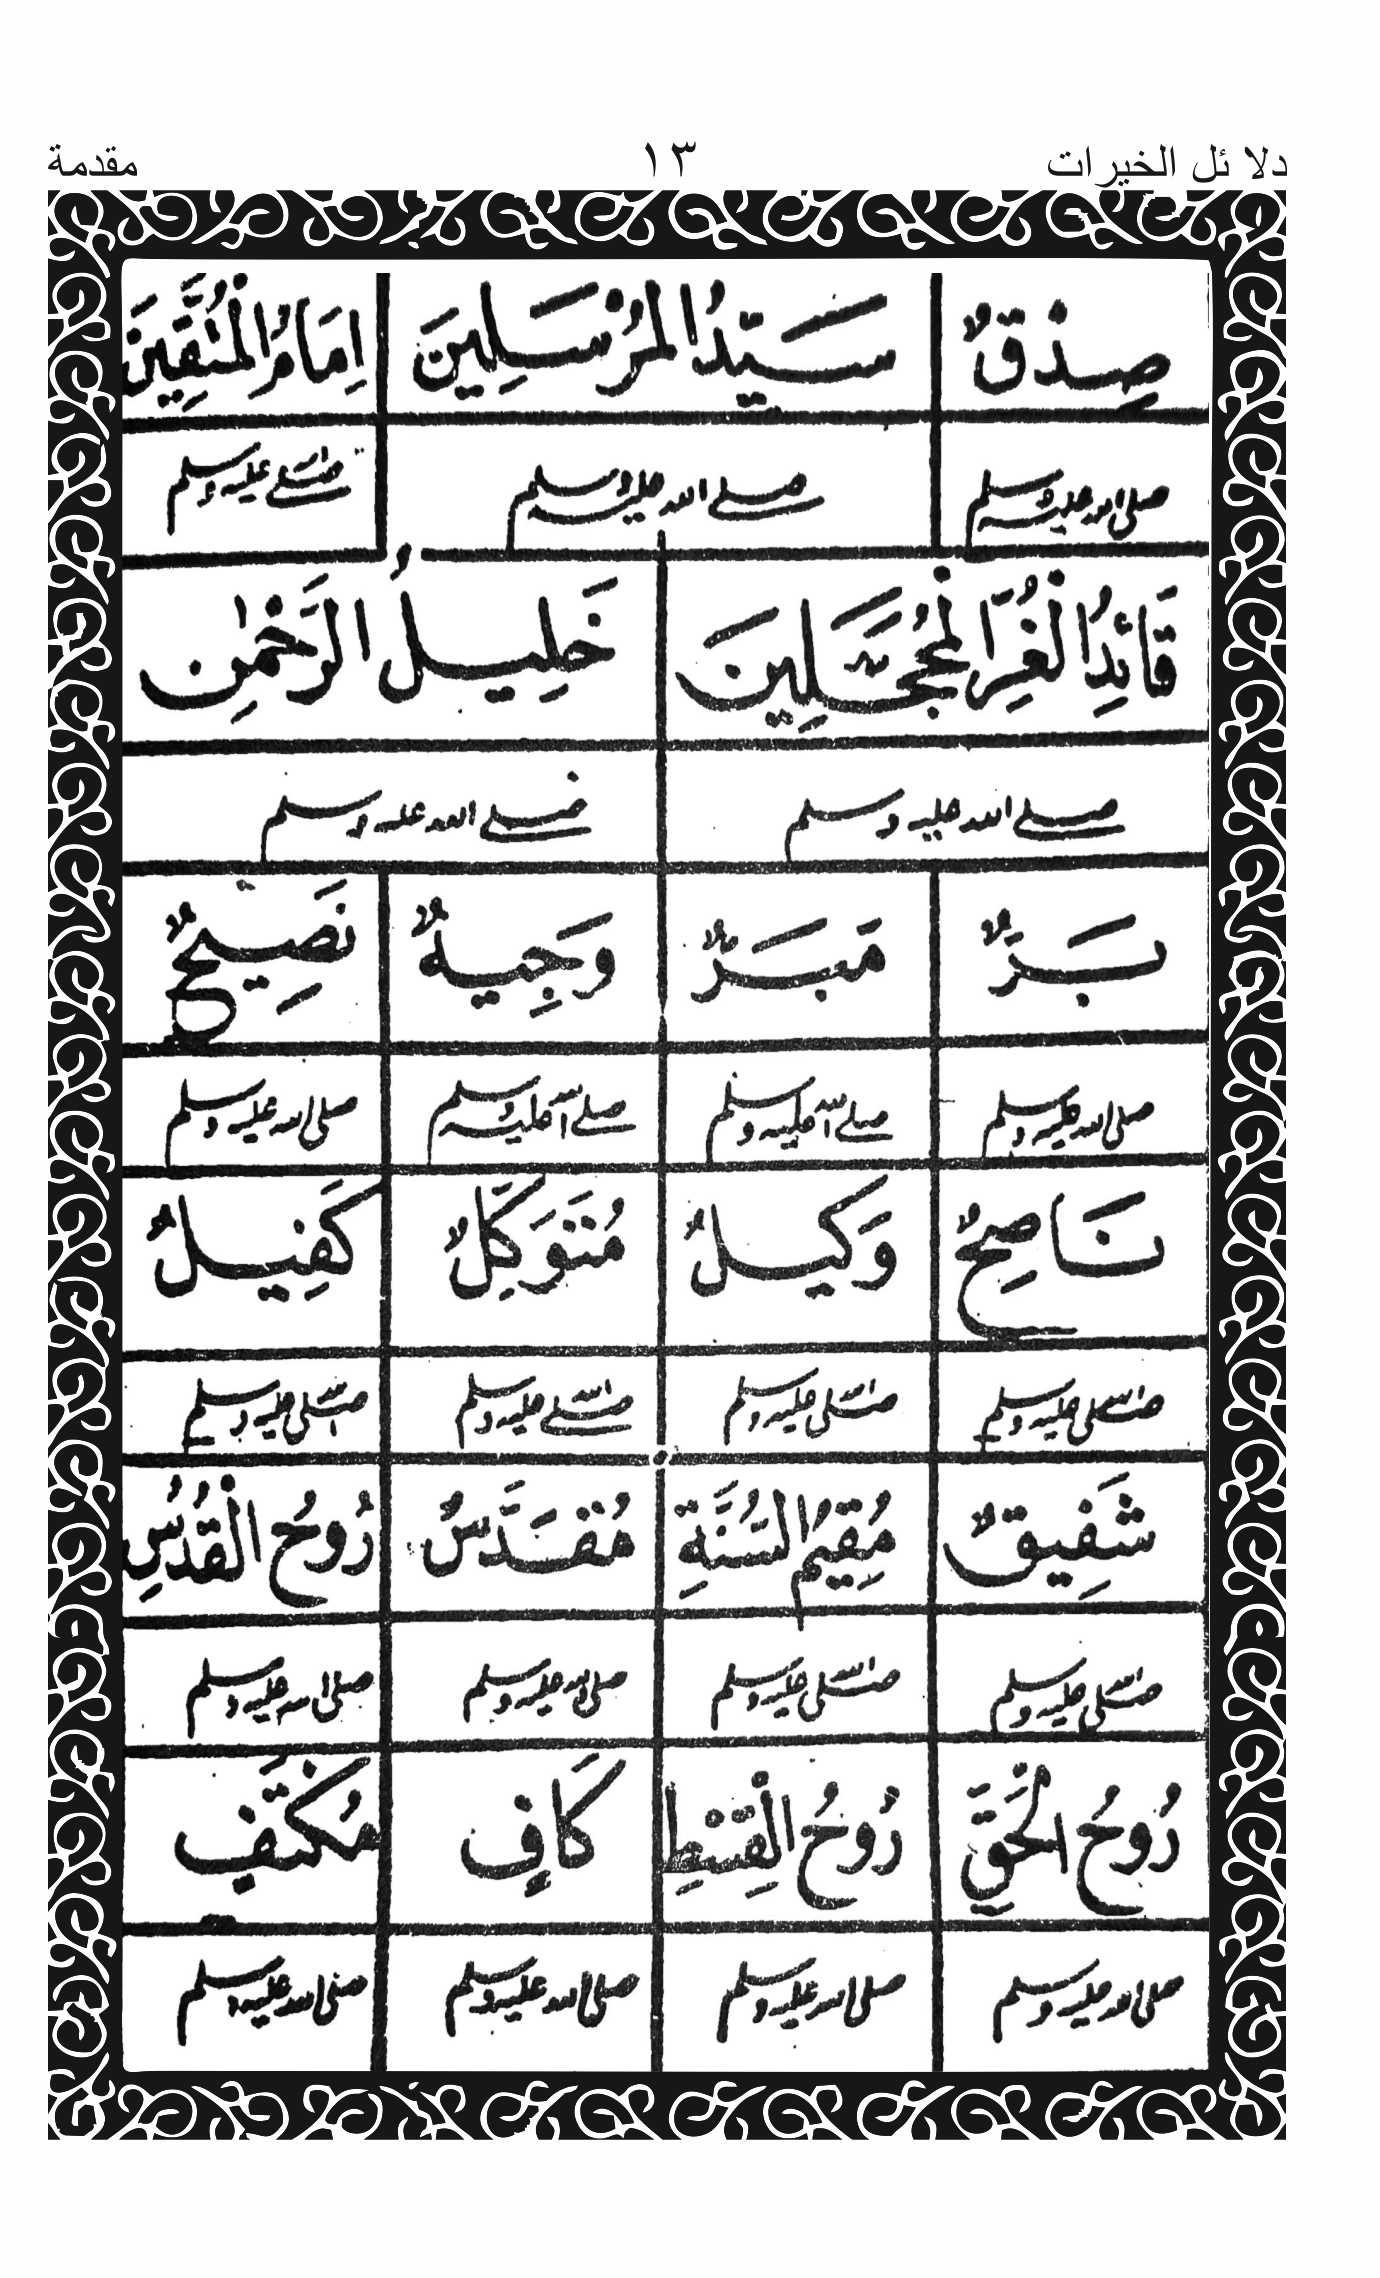 دلا ئل الخيرات ١٣ مقدمة
صِدْقٌ سَيِّدُ الْمُرْسَلِينَ اِمَامُ الْمُتَّقِينَ
صلى الله عليه وسلم صلے الله عليه وسلم صلے الله عليه وسلم
قَائِدُ الْغُرِّ الْمُحَجَّلِينَ خَلِيلُ الرَّحْمٰنِ
صلے الله عليه وسلم صلے الله عليه وسلم
بَرٌّ مَبَرٌّ وَجِيهٌ نَصِيحٌ
صلى الله عليه وسلم صلے الله عليه وسلم صلے الله عليه وسلم صلى الله عليه وسلم
نَاصِحٌ وَكِيلٌ مُتَوَكِّلٌ كَفِيلٌ
صلى الله عليه وسلم صلى الله عليه وسلم صلے الله عليه وسلم صلى الله عليه وسلم
شَفِيقٌ مُقِيمُ السُّنَّةِ مُقَدَّسٌ رُوحُ الْقُدُسِ
صلى الله عليه وسلم صلى الله عليه وسلم صلى الله عليه وسلم صلى الله عليه وسلم
رُوحُ الْحَقِّ رُوحُ الْقِسْطِ كَافٍ مُكْتَفٍ
صلى الله عليه وسلم صلى الله عليه وسلم صلى الله عليه وسلم صلى الله عليه وسلم